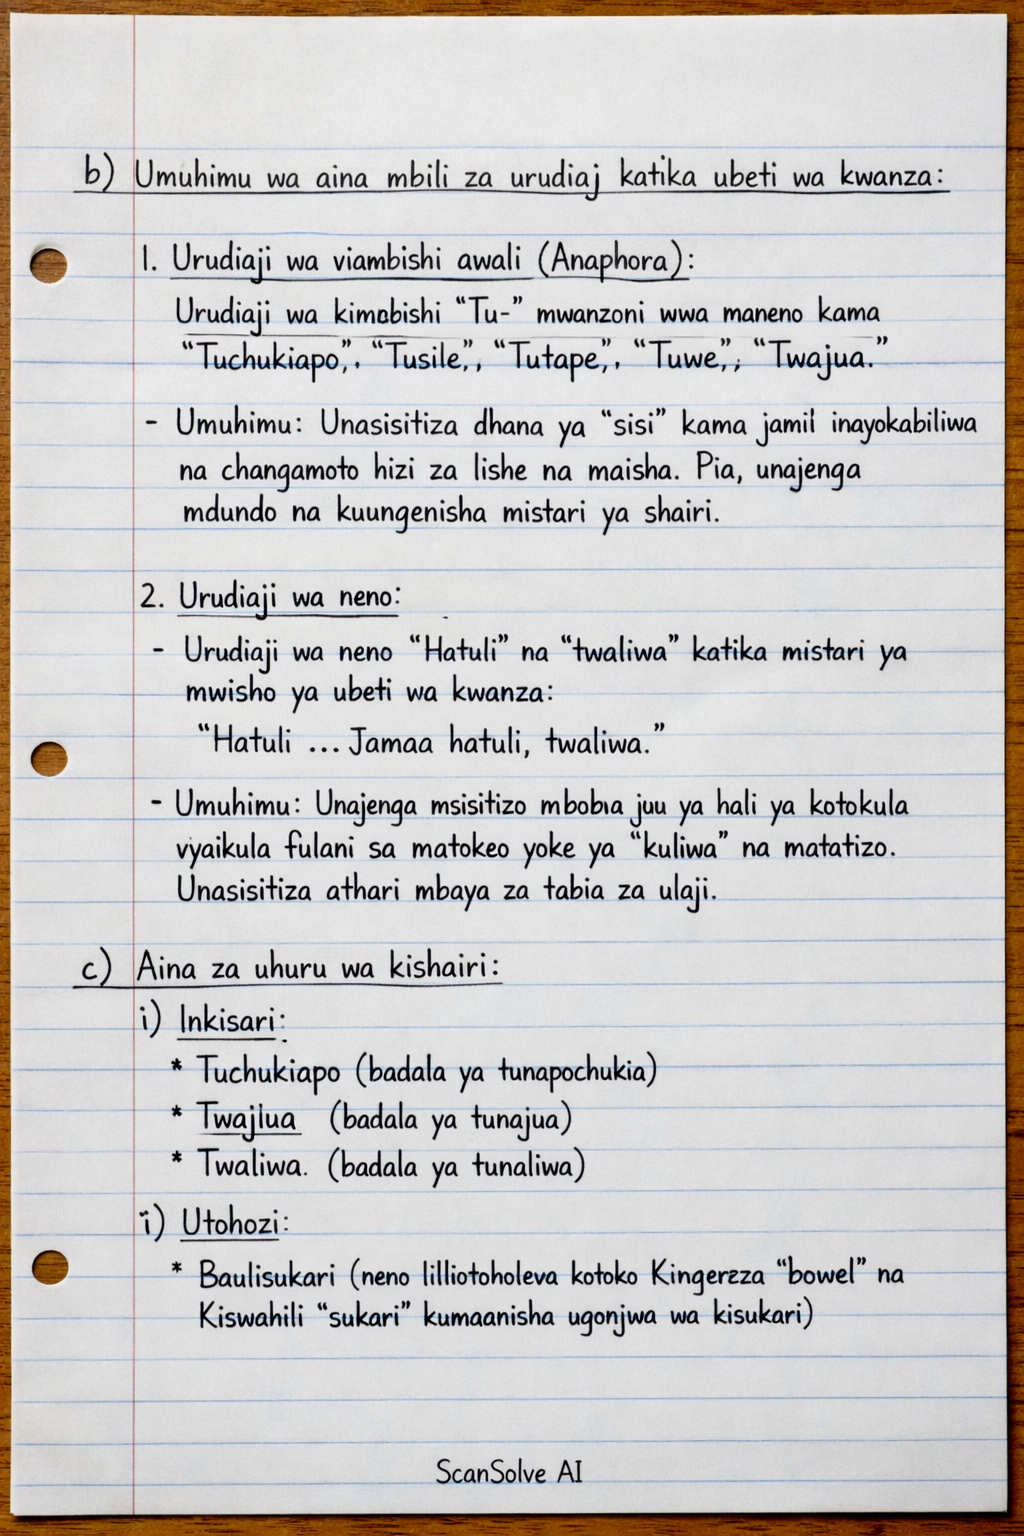 b) Umuhimu wa aina mbili za urudiaj katika ubeti wa kwanza:
1. Urudiaji wa viambishi awali (Anaphora):
Urudiaji wa kimabishi “Tu-” mwanzoni wwa maneno kama
“Tuchukiapo,”. “Tusile,”, “Tutape,”. “Tuwe,”; “Twajua.”
- Umuhimu: Unasisitiza dhana ya “sisi” kama jamil inayokabiliwa
na changamoto hizi za lishe na maisha. Pia, unajenga
mdundo na kuungenisha mistari ya shairi.
2. Urudiaji wa neno:
- Urudiaji wa neno “Hatuli” na “twaliwa” katika mistari ya
mwisho ya ubeti wa kwanza:
“Hatuli ... Jamaa hatuli, twaliwa.”
- Umuhimu: Unajenga msisitizo mbobıa juu ya hali ya kotokula
vyaikula fulani sa matokeo yoke ya “kuliwa” na matatizo.
Unasisitiza athari mbaya za tabia za ulaji.
c) Aina za uhuru wa kishairi:
i) Inkisari:
* Tuchukiapo (badala ya tunapochukia)
* Twajlua (badala ya tunajua)
* Twaliwa. (badala ya tunaliwa)
i) Utohozi:
* Baulisukari (neno lilliotoholeva kotoko Kingerzza “bowel” na
Kiswahili “sukari” kumaanisha ugonjwa wa kisukari)
ScanSolve AI